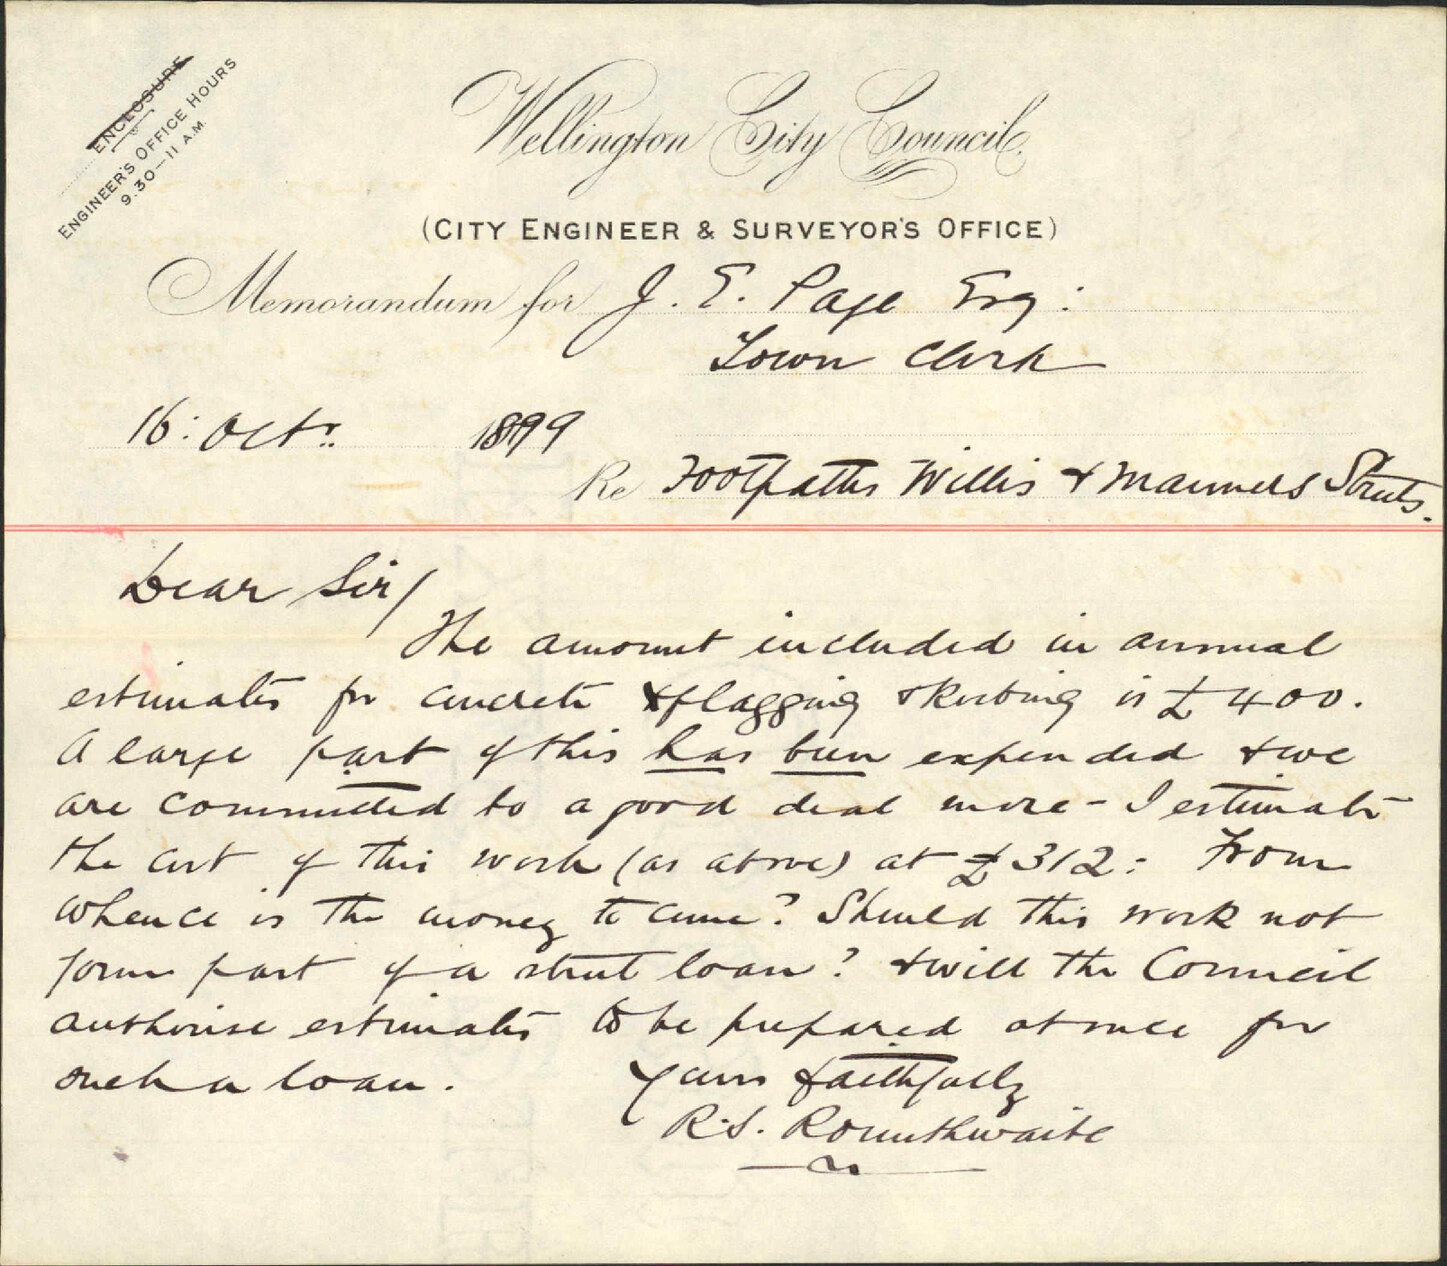 ENCLOSURE
ENGINEER'S OFFICE HOURS
9.30—11 A.M.
Wellington City Council.
(CITY ENGINEER & SURVEYOR'S OFFICE)
Memorandum for J. E. Page Esq:
Town Clerk
16: Octr. 1899
Re Footpaths Willis & Manners Streets.
Dear Sir/
The amount included in annual
estimates for concrete & flagging & kerbing is £400.
A large part of this has been expended & we
are committed to a good deal more - I estimate
the cost of this work (as above) at £312: From
whence is the money to come? Should this work not
form part of a street loan? & will the Council
authorise estimates to be prepared at once for
such a loan.
Yours faithfully
R.S. Rounthwaite